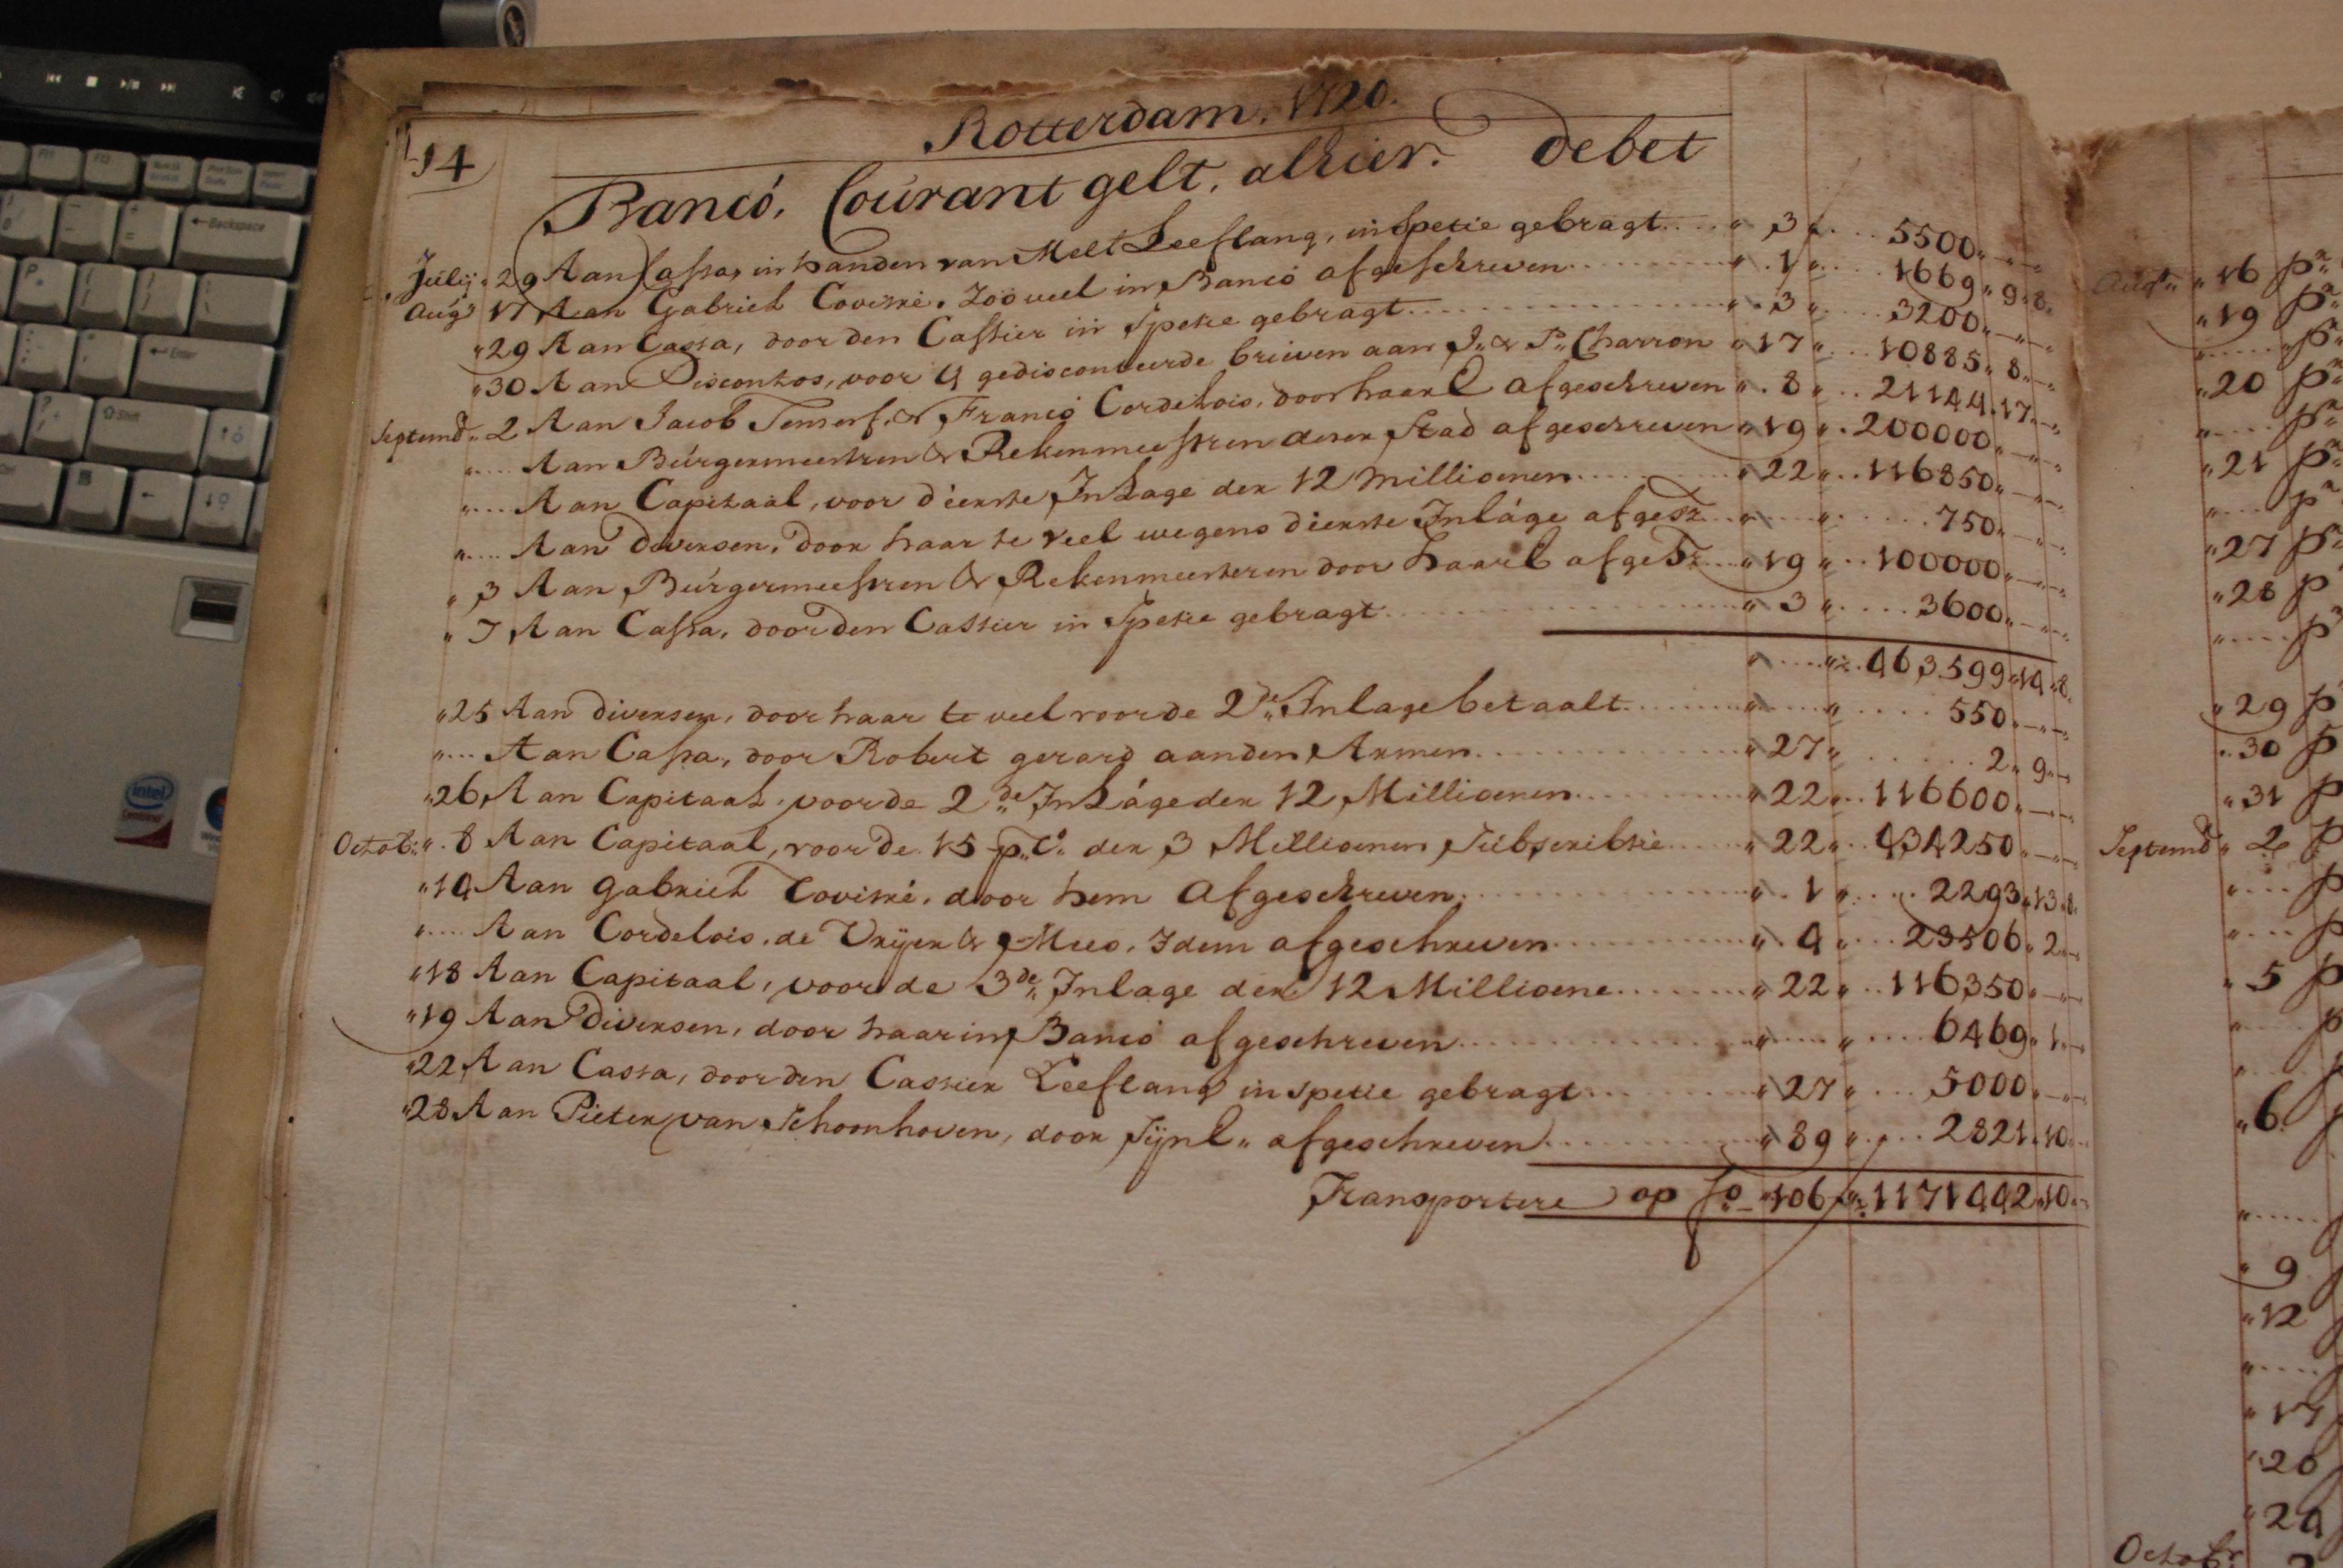 14
Rotterdam. 1720.
Banco, Courant gelt, alhier. debet
Julij 29 Aan Cassa, in handen van Melt Leeflang, in Spetie gebragt.... " 3 " .... 5500 " — " —
Aug 17 Aan Gabriel Covitié. Zoo veel in Banco afgeschreven .... " 1 " .... 1669 " 9 " 8
" 29 Aan Cassa, door den Cassier in Spetie gebragt .... " 3 " .... 3200 " — " —
" 30 Aan Discontos, voor 4 gedisconteerde brieven aan J. & P. Charron " 17 " ... 10885 " 8 " —
Septemb " 2 Aan Jacob & Franco Cordelois, door haarl afgeschreven " 8 " .. 21144 " 17 " —
" .... Aan Burgermeesteren & Rekenmeesteren deser Stad afgeschreven " 19 " . 200000 " — " —
" .... Aan Capitaal, voor d'eerste Inlage der 12 Millioenen .... " 22 " .. 116850 " — " —
" .... Aan diversen, door haar te veel wegens d'eerste Inlage afgesz .... " .... " .... 750 " — " —
" 3 Aan Burgermeesteren & Rekenmeesteren door haarl afgesz .... " 19 " .. 100000 " — " —
" 7 Aan Cassa, door den Cassier in Spetie gebragt .... " 3 " .... 3600 " — " —
" .... " .. 463599 " 14 " 8
" 25 Aan diversen, door haar te veel voor de 2de Inlage betaalt .... " .... " .... 550 " — " —
" .... Aan Cassa, door Robert gerard aanden Armen .... " 27 " .... 2 " 9 " —
" 26 Aan Capitaal, voor de 2de Inlage der 12 Millioenen .... " 22 " .. 116600 " — " —
Octob: " 8 Aan Capitaal, voor de 15 p. Co. der 3 Millioenen Subscribtie .... " 22 " .. 434250 " — " —
" 14 Aan gabriel Covitié, door hem Afgeschreven .... " 1 " .... 2293 " 13 " 8
" .... Aan Cordelois, de Vrijer & Mees, Idem afgeschreven .... " 4 " ... 23506 " 2 " —
" 18 Aan Capitaal, voor de 3de Inlage der 12 Millioene .... " 22 " .. 116350 " — " —
" 19 Aan diversen, door haar in Banco afgeschreven .... " .... " .... 6469 " 1 " —
" 22 Aan Cassa, door den Cassier Leeflang in spetie gebragt .... " 27 " ... 5000 " — " —
" 28 Aan Pieter van Schoonhoven, door Sijnl " afgeschreven .... " 89 " .... 2821 " 10 " —
Transportere op fo 106 " 1171442 " 10 " —
Aug " 16 p
" 19 p
" ..... p
" 20 p
" ..... p
" 21 p
" .... p
" 27 p
" 28 p
" ..... p
" 29 p
" 30 p
" 31 p
Septemb " 2 p
" .... p
" .... p
" 5 p
" .... p
" 6
" .....
" 9
" 12
" ....
" 17
" 20
" 24
Octob
Backspace
Enter
Shift
F11
F12
intel